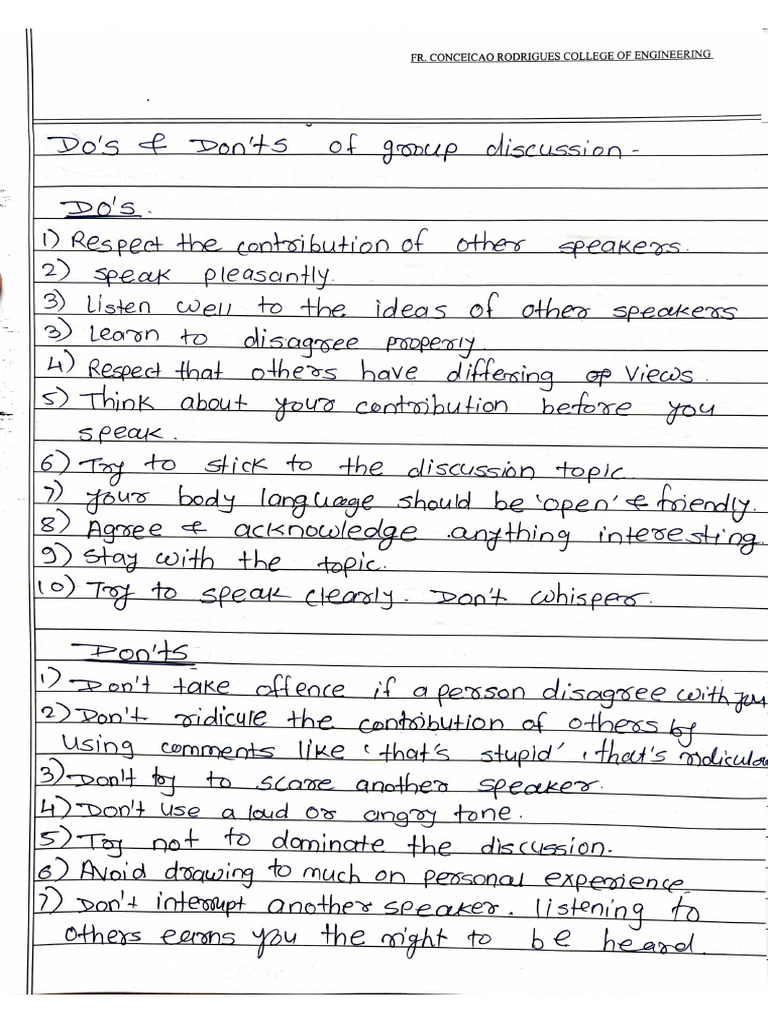 FR. CONCEICAO RODRIGUES COLLEGE OF ENGINEERING
Do's & Don'ts of group discussion -
Do's.
1) Respect the contribution of other speakers.
2) speak pleasantly.
3) Listen well to the ideas of other speakers
3) Learn to disagree properly.
4) Respect that others have differing views.
5) Think about your contribution before you
speak.
6) Try to stick to the discussion topic.
7) your body language should be 'open' & friendly.
8) Agree & acknowledge anything interesting.
9) Stay with the topic.
10) Try to speak clearly. Don't whisper.
Don'ts
1) Don't take offence if a person disagree with you
2) Don't ridicule the contribution of others by
using comments like 'that's stupid', 'that's
3) Don't try to scare another speaker.
4) Don't use a loud or angry tone.
5) Try not to dominate the discussion.
6) Avoid drawing to much on personal experience.
7) Don't interrupt another speaker. listening to
others earns you the right to be heard.